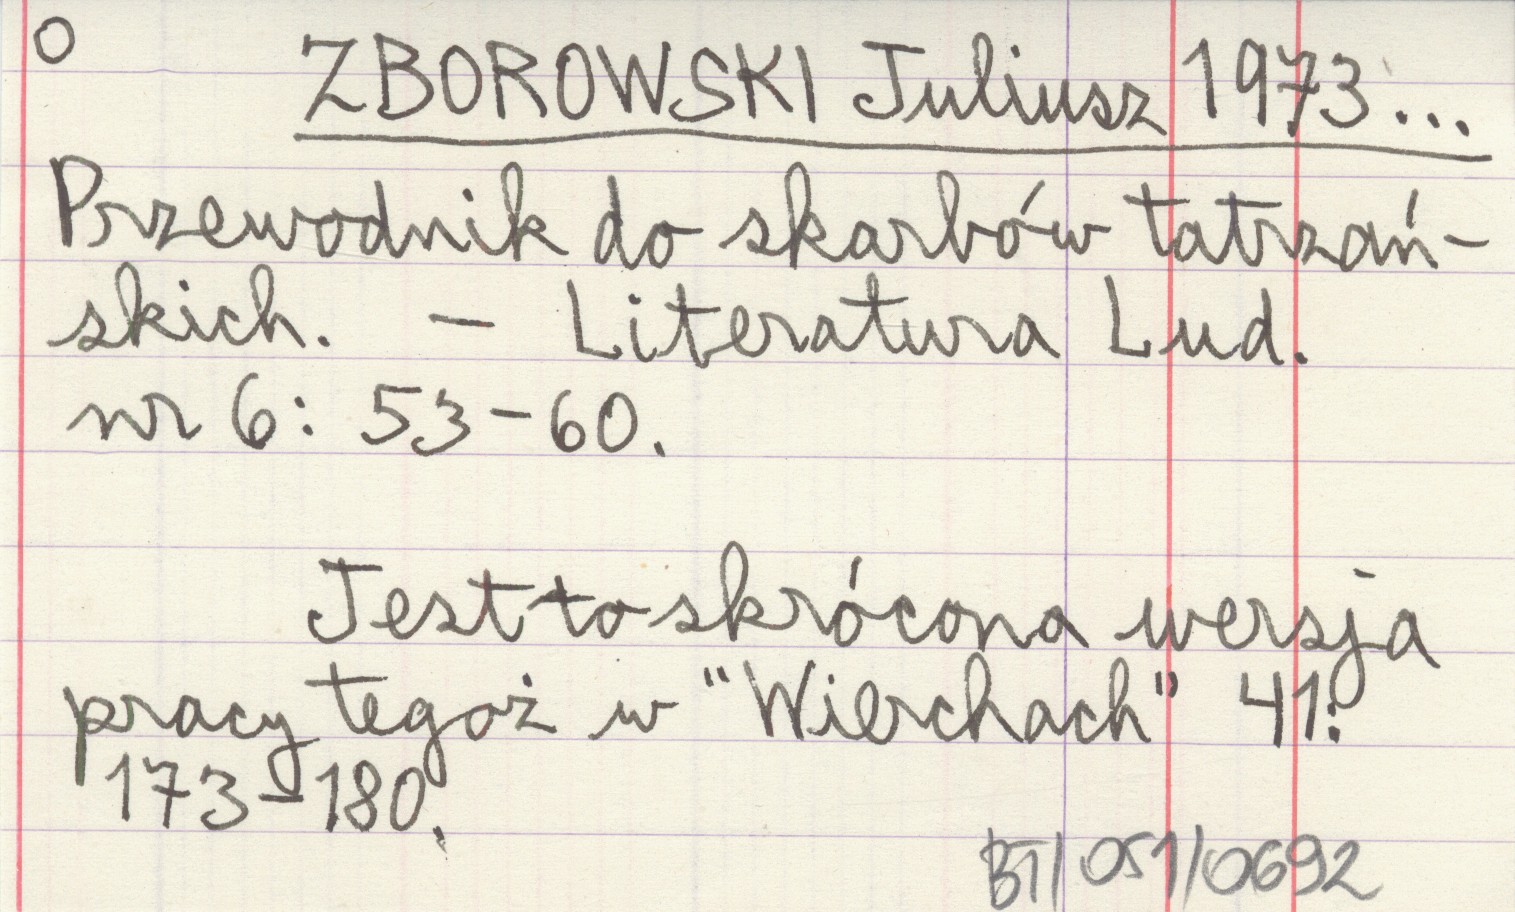 O
ZBOROWSKI Juliusz 1973...
Przewodnik do skarbów tatrzań-
skich. - Literatura Lud.
nr 6: 53-60.
Jest to skrócona wersja
pracy tegoż w "Wierchach" 41:
173-180.
BT/051/0692